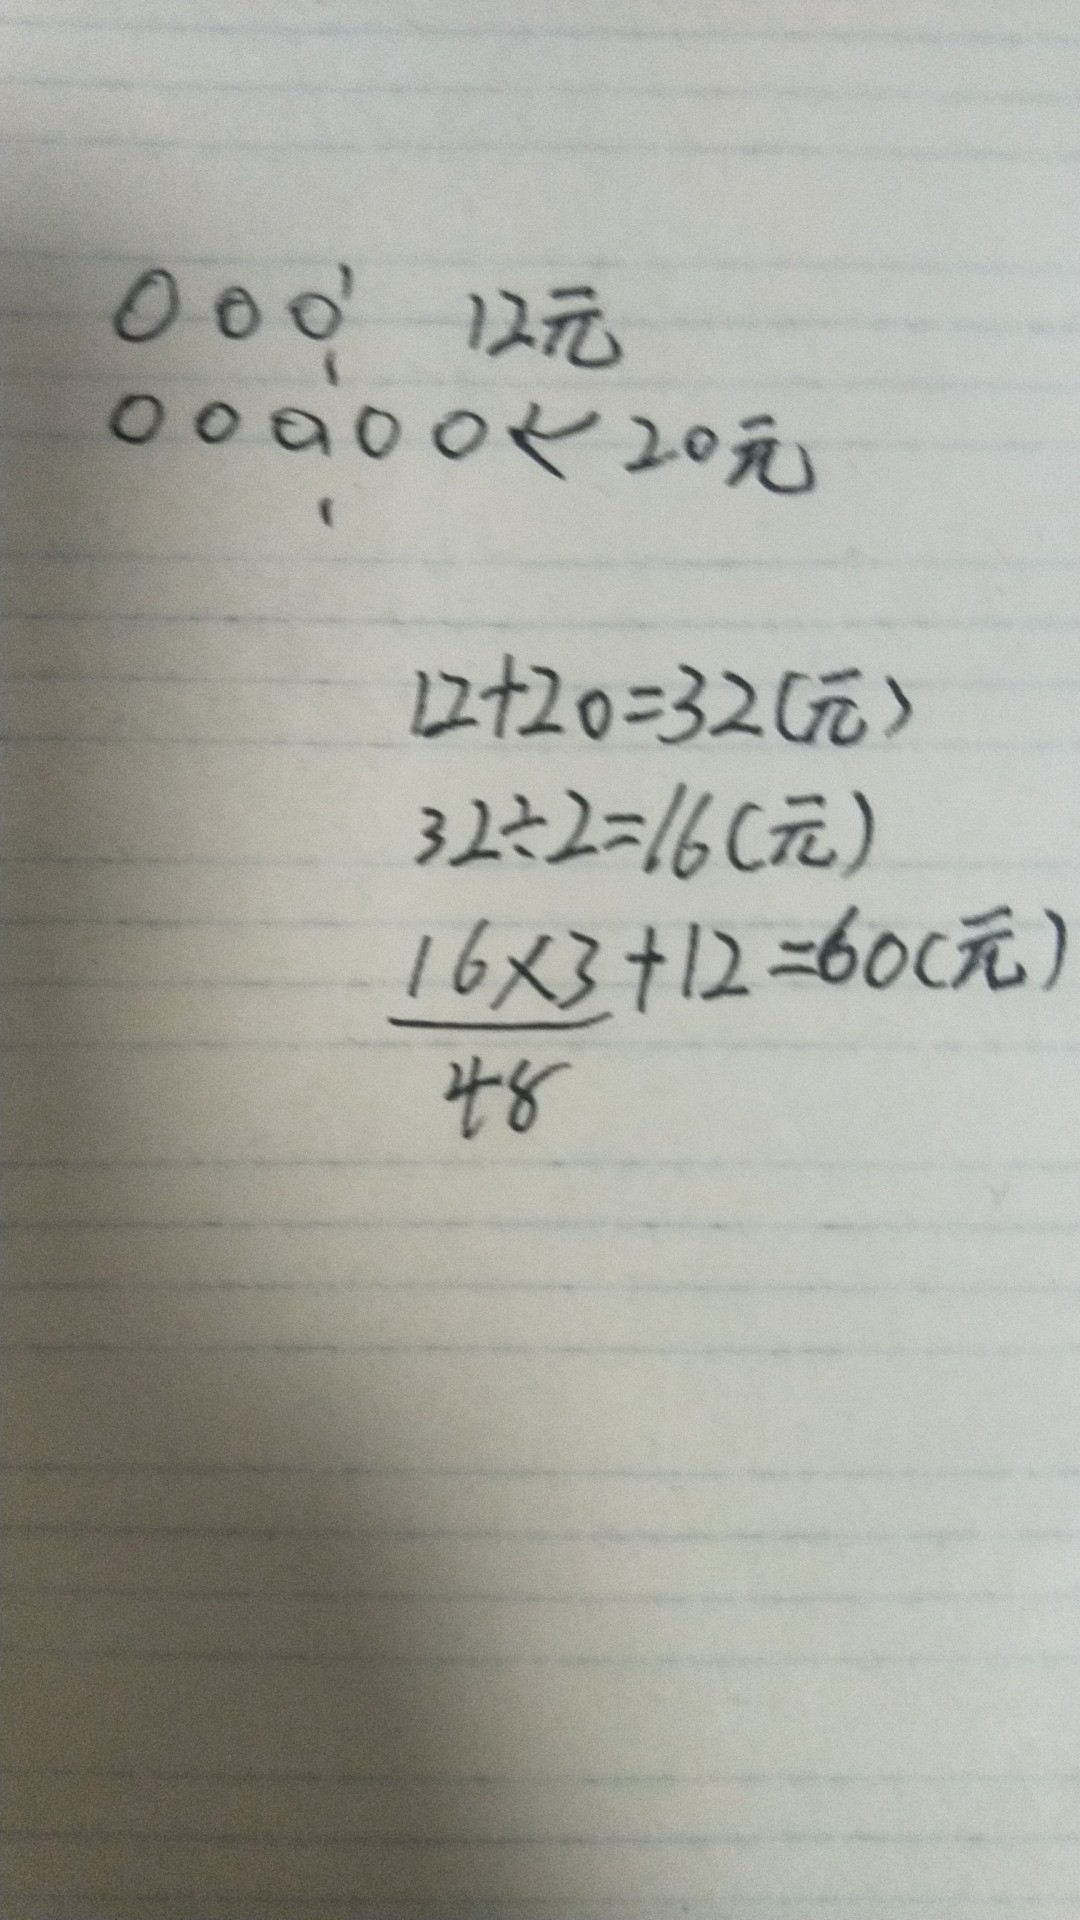 000 12元
00000 ← 20元
12+20=32(元)
32÷2=16(元)
16×3+12=60(元)
48